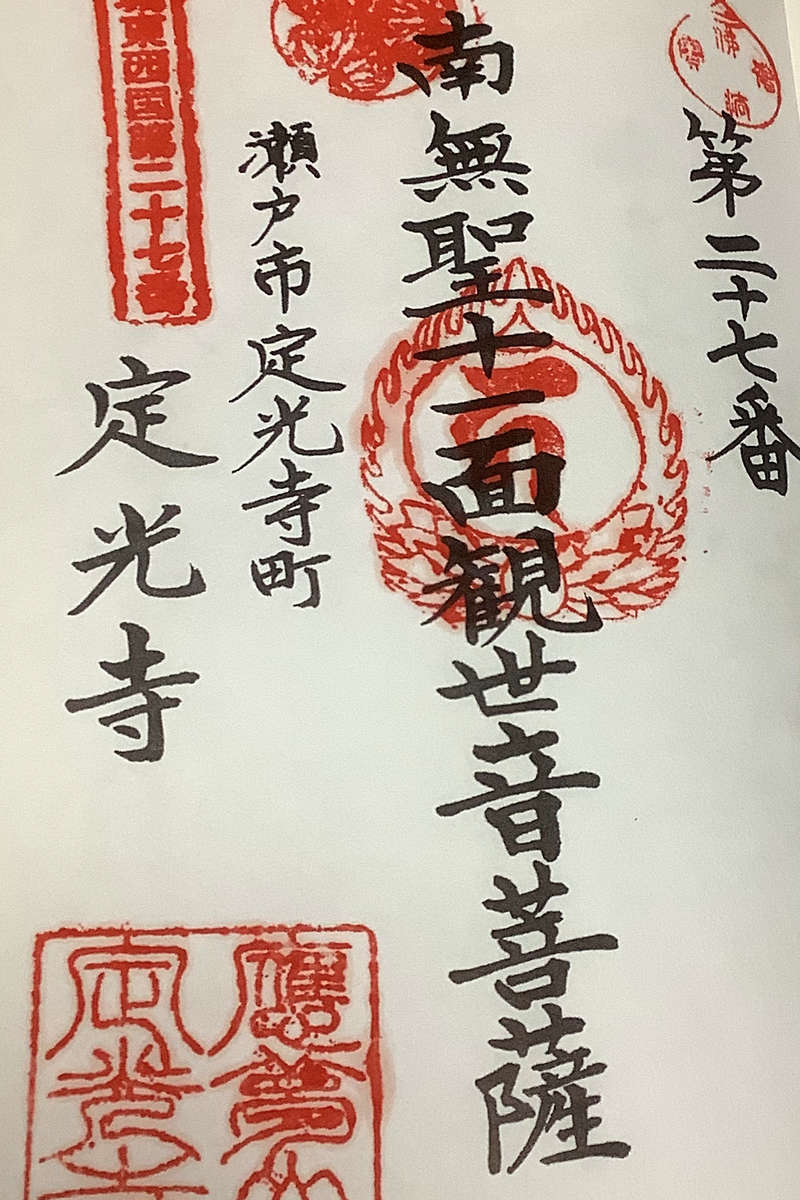 第二十七番
南無聖十一面観世音菩薩
瀬戸市定光寺町
定光寺
東西国第二十七番
應夢山
定光寺